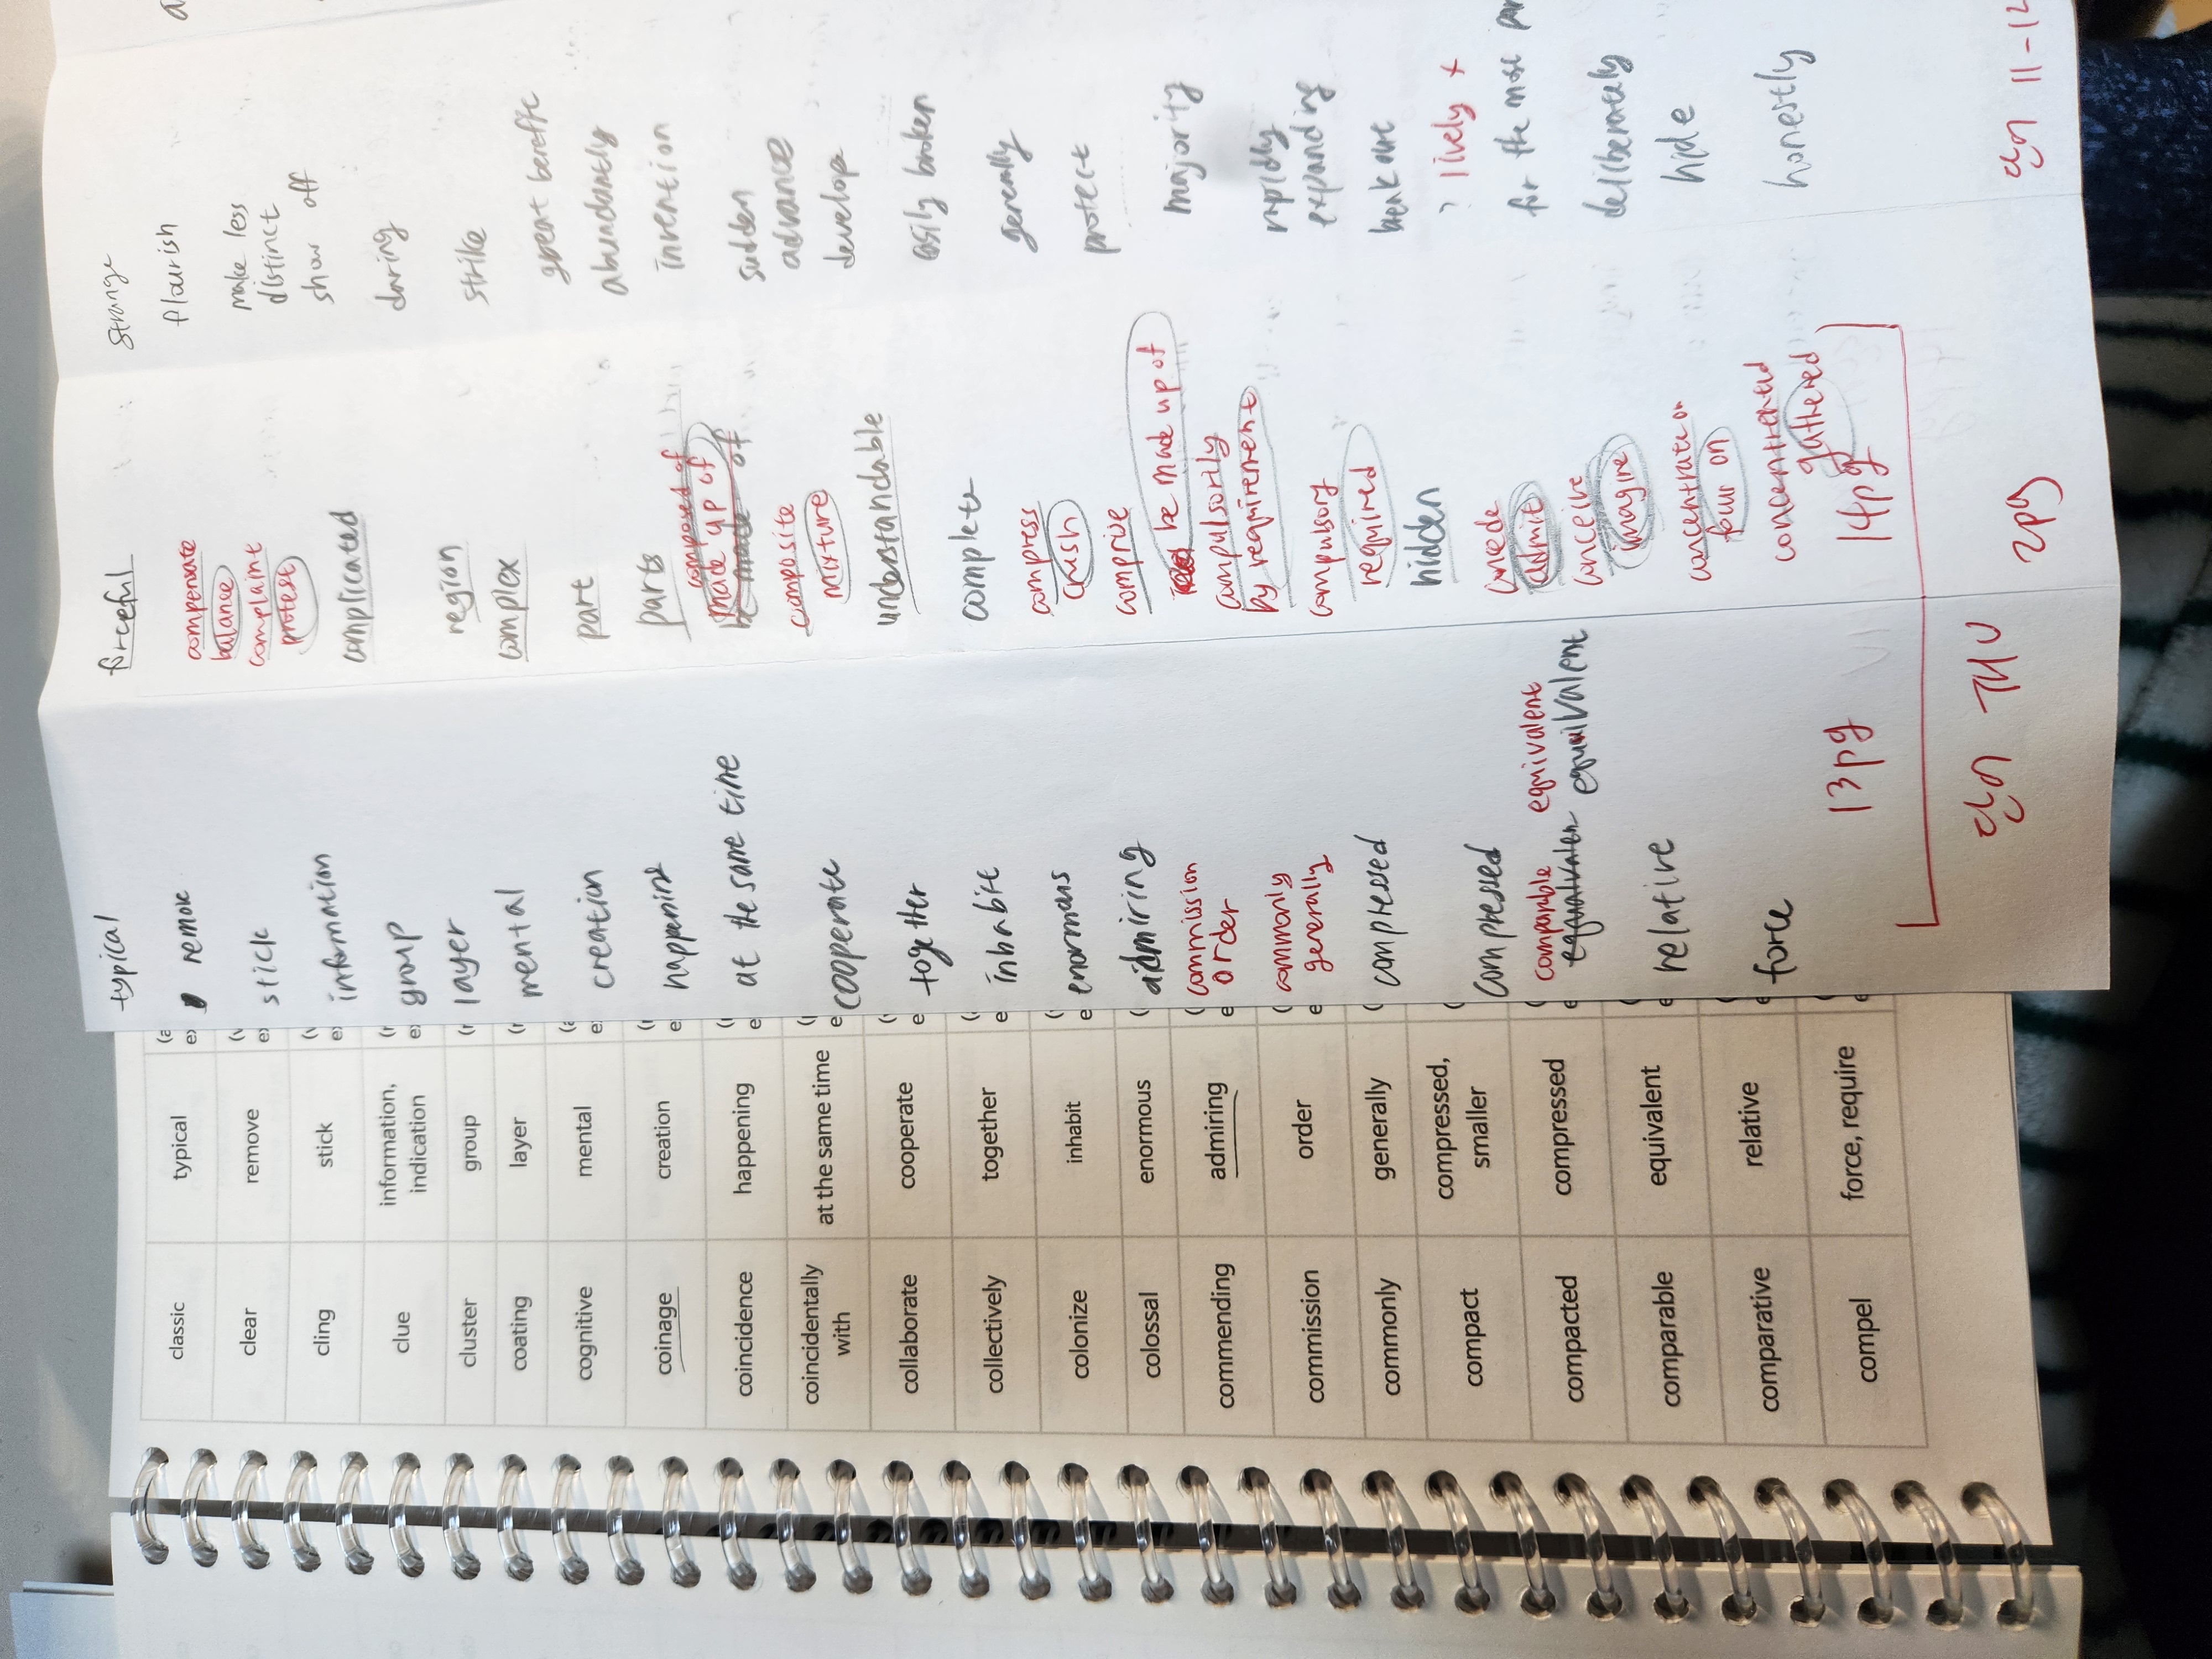 classic typical
clear remove
cling stick
clue information,
indication
cluster group
coating layer
cognitive mental
coinage creation
coincidence happening
coincidentally
with at the same time
collaborate cooperate
collectively together
colonize inhabit
colossal enormous
commending admiring
commission order
commonly generally
compact compressed,
smaller
compacted compressed
comparable equivalent
comparative relative
compel force, require
typical
remove
stick
information
group
layer
mental
creation
happening
at the same time
cooperate
together
inhabit
enormous
admiring
commission
order
commonly
generally
compressed
compressed
comparable equivalent
equivalent
relative
force
13pg
forceful
compensate
balance
complaint
protest
complicated
region
complex
part
parts
composed of
made up of
composite
mixture
understandable
complete
compress
crush
comprise
be made up of
compulsorily
by requirement
compulsory
required
hidden
concede
admit
conceive
imagine
concentration
four on
concentrated
gathered
14pg
THU
2pg
strange
flourish
make less
distinct
show off
daring
strike
great benefit
abundantly
invention
sudden
advance
develop
easily broken
generally
protect
majority
rapidly
expanding
break out
? lively +
for the most
deliberately
hide
honestly
11-12